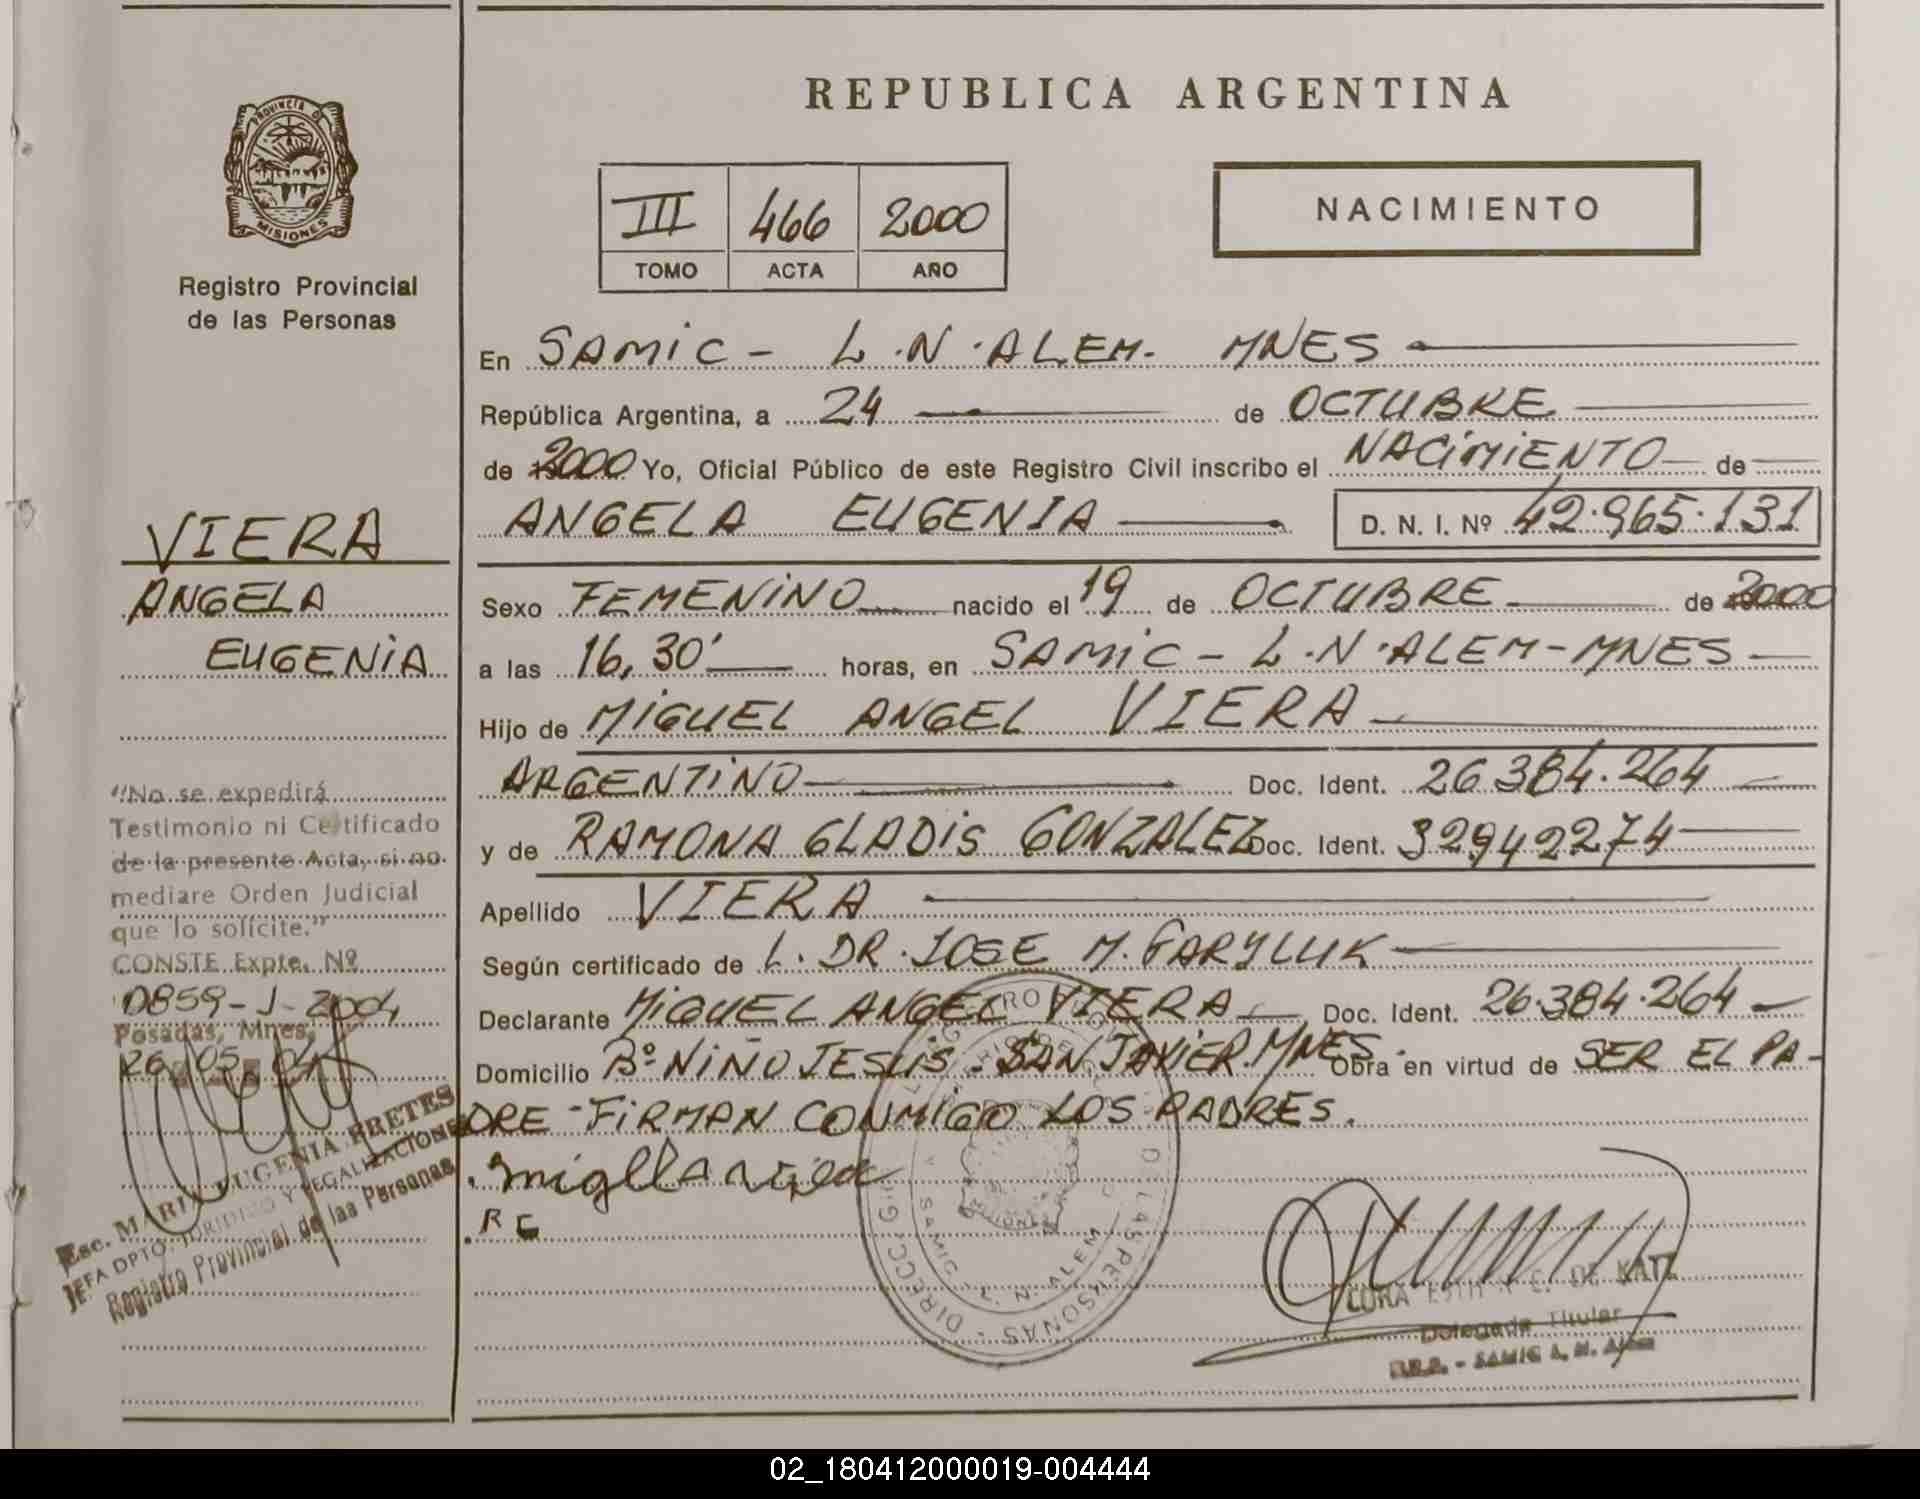 REPUBLICA ARGENTINA
PROVINCIA DE
MISIONES
Registro Provincial
de las Personas
III 466 2000
TOMO ACTA AÑO
NACIMIENTO
En SAMIC - L.N.ALEM. MNES
República Argentina, a 24 de OCTUBRE
de 2000 Yo, Oficial Público de este Registro Civil inscribo el NACIMIENTO de
ANGELA EUGENIA D. N. I. Nº 42.965.131
Sexo FEMENINO nacido el 19 de OCTUBRE de 2000
a las 16,30' horas, en SAMIC - L.N.ALEM - MNES
Hijo de MIGUEL ANGEL VIERA
ARGENTINO Doc. Ident. 26.384.264
y de RAMONA GLADIS GONZALEZ Doc. Ident. 32942274
Apellido VIERA
Según certificado de L. DR. JOSE M. GARYLUK
Declarante MIGUEL ANGEL VIERA Doc. Ident. 26.384.264
Domicilio Bº NIÑO JESUS. SAN JAVIER. MNES. Obra en virtud de SER EL PA-
DRE - FIRMAN CONMIGO LOS PADRES.
R G
DE LAS PERSONAS
SAMIC L. N. ALEM
MISIONES
C. DE KATZ
Delegada Titular
SAMIC L. N. Alem
VIERA
ANGELA
EUGENIA
"No se expedirá
Testimonio ni Certificado
de la presente Acta, si no
mediare Orden Judicial
que lo solicite."
CONSTE Expte. Nº
0859-J-2004
Posadas, Mnes,
26 05 04
Esc. MARIA EUGENIA BRETES
JEFA DPTO. JURIDICO Y LEGALIZACIONES
Registro Provincial de las Personas
02_180412000019-004444